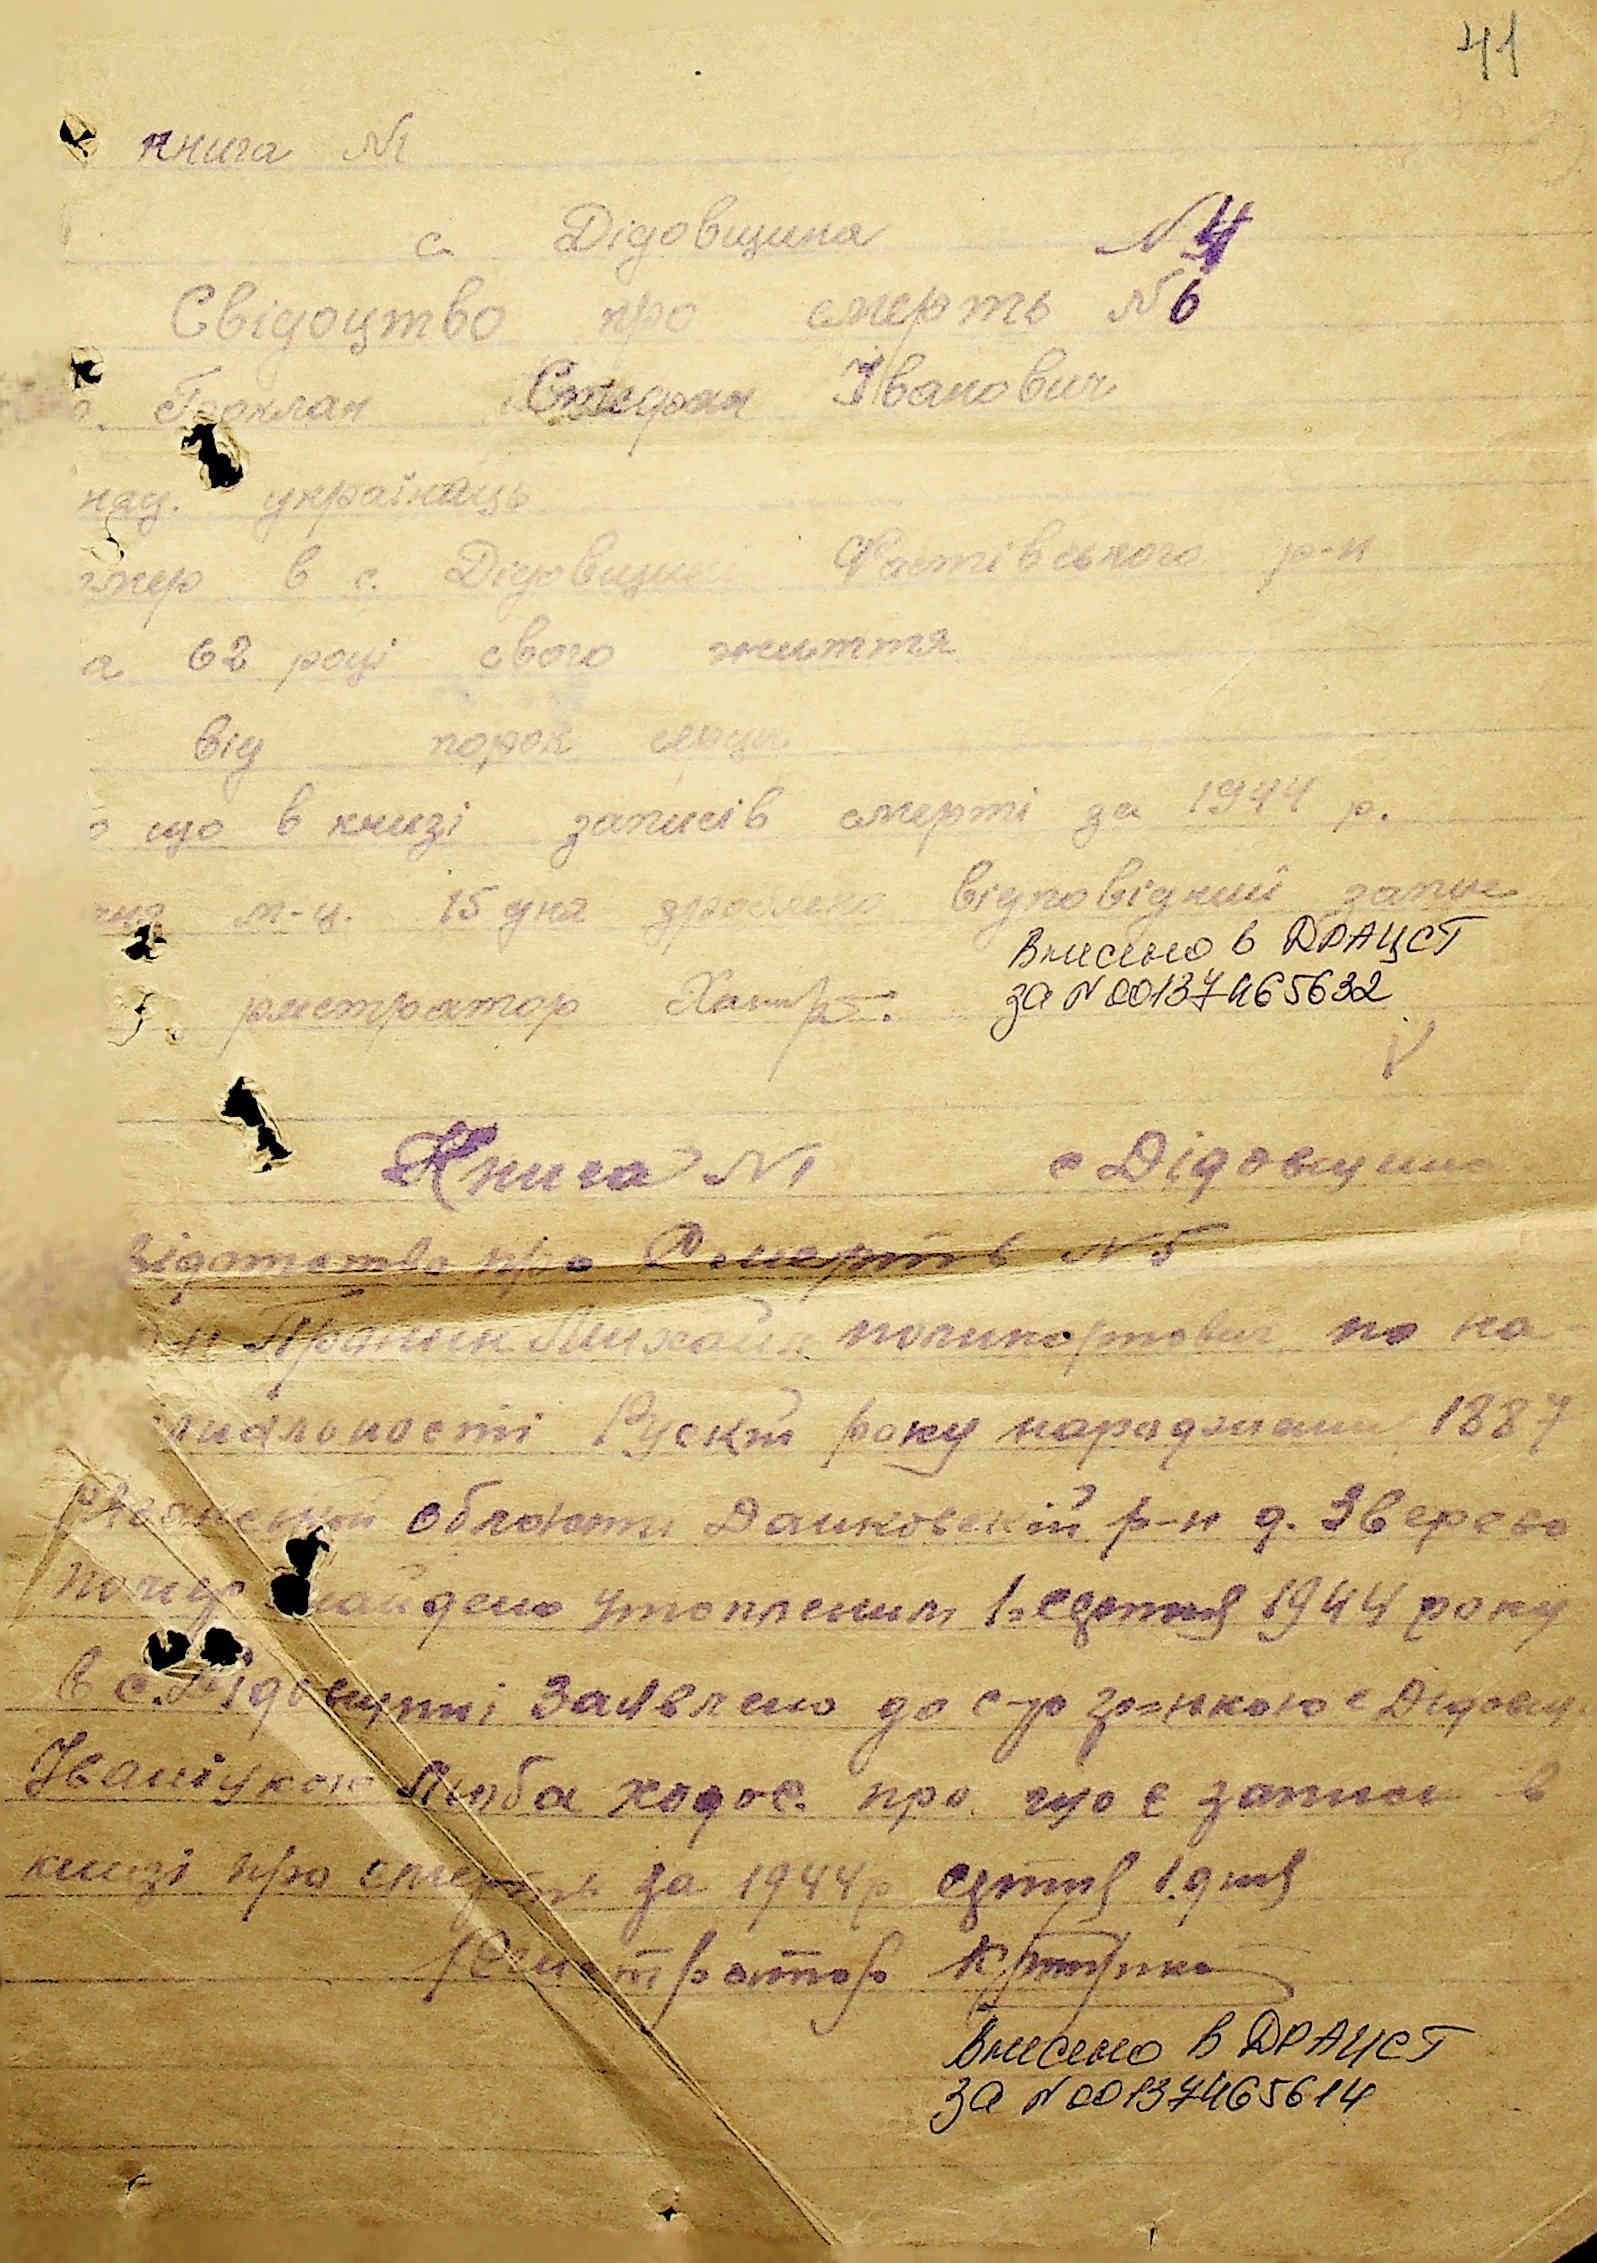 41
книга №1
с. Дідовщина №4
Свідоцтво про смерть №6
Степан Іванович
нац. українець
в с. Дідовщин Фастівського р-н
а 62 році свого життя
від порок серця
що в книзі записів смерті за 1944 р.
м-ц. 15 дня зроблено відповідний запис
Внесено в ДРАЦСГ
за №00137465632
риєстратор
V
Книга №1 с Дідовщина
відотство про Смерть №5
Михаил поликарпович по на-
нальности Рускій року народження 1887
области Данковский р-н д. Зверево
найдено утопленим 1. серпня 1944 року
в с. Дідовщині Заявлено до с-р гр-нкою с Дідовщ.
Люба про що є запись в
книзі про смерть за 1944 р серпня 1. дня
Риєстратор
Внесено в ДРАЦСГ
за №00137465614